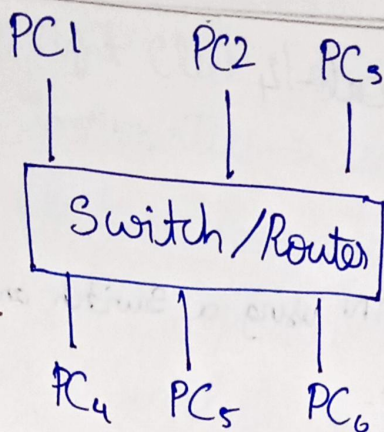 PC1 PC2 PC3
Switch/Router
PC4 PC5 PC6